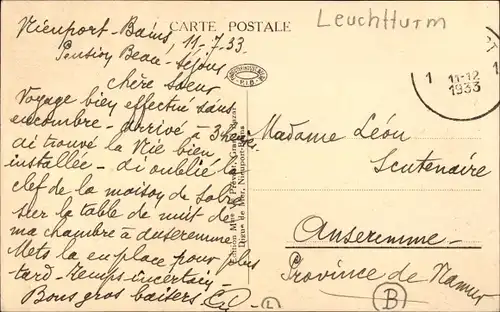 CARTE POSTALE
Leuchtturm
Nieuport-Bains,
11-7.33.
Pension Beau-Séjour
chère Soeur
Voyage bien effectué sans
encombre - arrivé à 3 heures
ai trouvé la vie bien
installée - ai oublié la
clef de la maison de
sur la table de nuit de
ma chambre à Anseremme
Mets la en place pour plus
tard - Temps incertain -
Bons gros baisers
Madame Léon
Scutenaire
Anseremme -
Province de Namur
1 11-12 1
1933
Digue de Mer, Nieuport-Bains
L
B